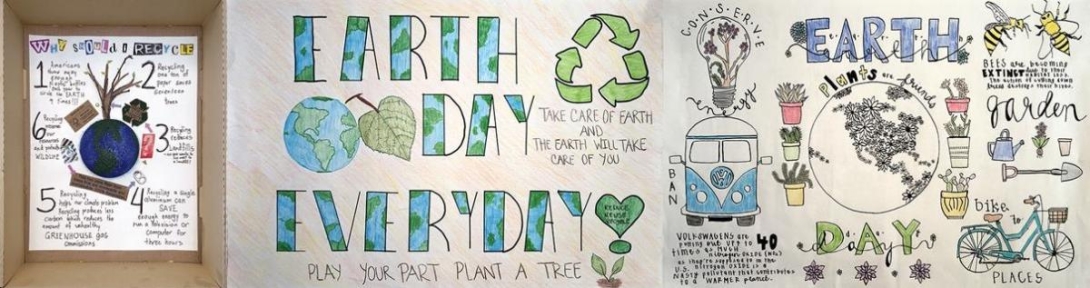 WHY SHOULD I RECYCLE
1 Americans
throw away
enough
plastic bottles
each year to
circle the EARTH
4 times!!!
2 Recycling
one ton of
paper saves
seventeen
trees
6 Recycling
resources
and protects
WILDLIFE
3 Recycling
reduces
Landfills
5 Recycling
helps our climate problem
Recycling produces less
carbon which reduces the
amount of unhealthy
GREENHOUSE gas
emissions
4 Recycling a single
aluminum can
SAVE
enough energy to
run a Television or
computer for
three hours
EARTH
DAY
TAKE CARE OF EARTH
AND
THE EARTH WILL TAKE
CARE OF YOU
EVERYDAY!
REDUCE
REUSE
RECYCLE
PLAY YOUR PART PLANT A TREE
CONSERVE
energy
BAN
VOLKSWAGENS are
putting out UPP to 40
times as MUCH
nitrogen OXIDE (NOx)
as they're supposed to in the
U.S. nitrogen OXIDE is a
NASTY pollutant that contributes
to a WARMER planet.
EARTH
plants are friends
DAAY
BEES are becoming
EXTINCT
garden
bike
to
PLACES